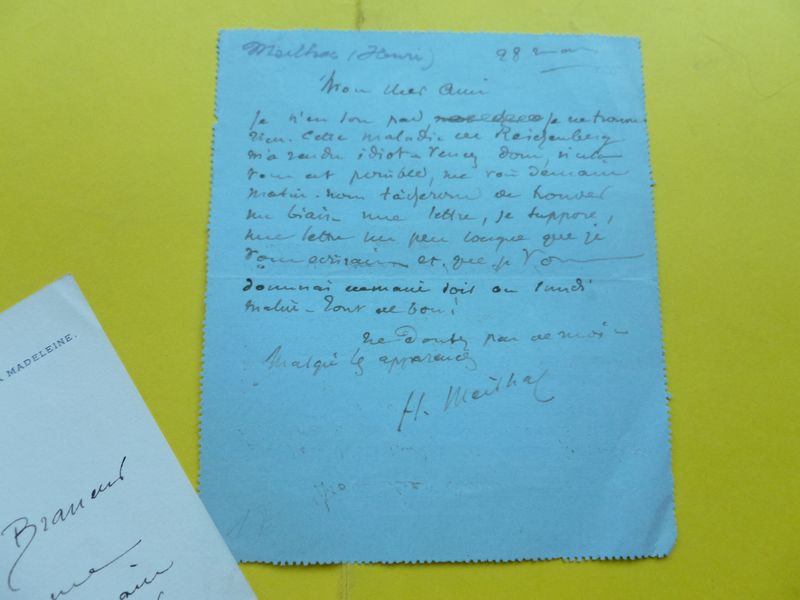 Meilhac (Henri) 28 mai
Mon cher Ami
Je n'en sors pas, je ne trouve
rien. Cette maladie de Reichenberg
m'a rendu idiot. Venez donc, si cela
vous est possible, me voir demain
matin. nous tâcherons de trouver
un biais. une lettre, je suppose,
une lettre un peu longue que je
vous écrirais et que je vous
donnerai demain soit ou lundi
matin. tout de bon!
ne Doutez pas de moi
Malgré les apparences
H. Meilhac
A MADELEINE.